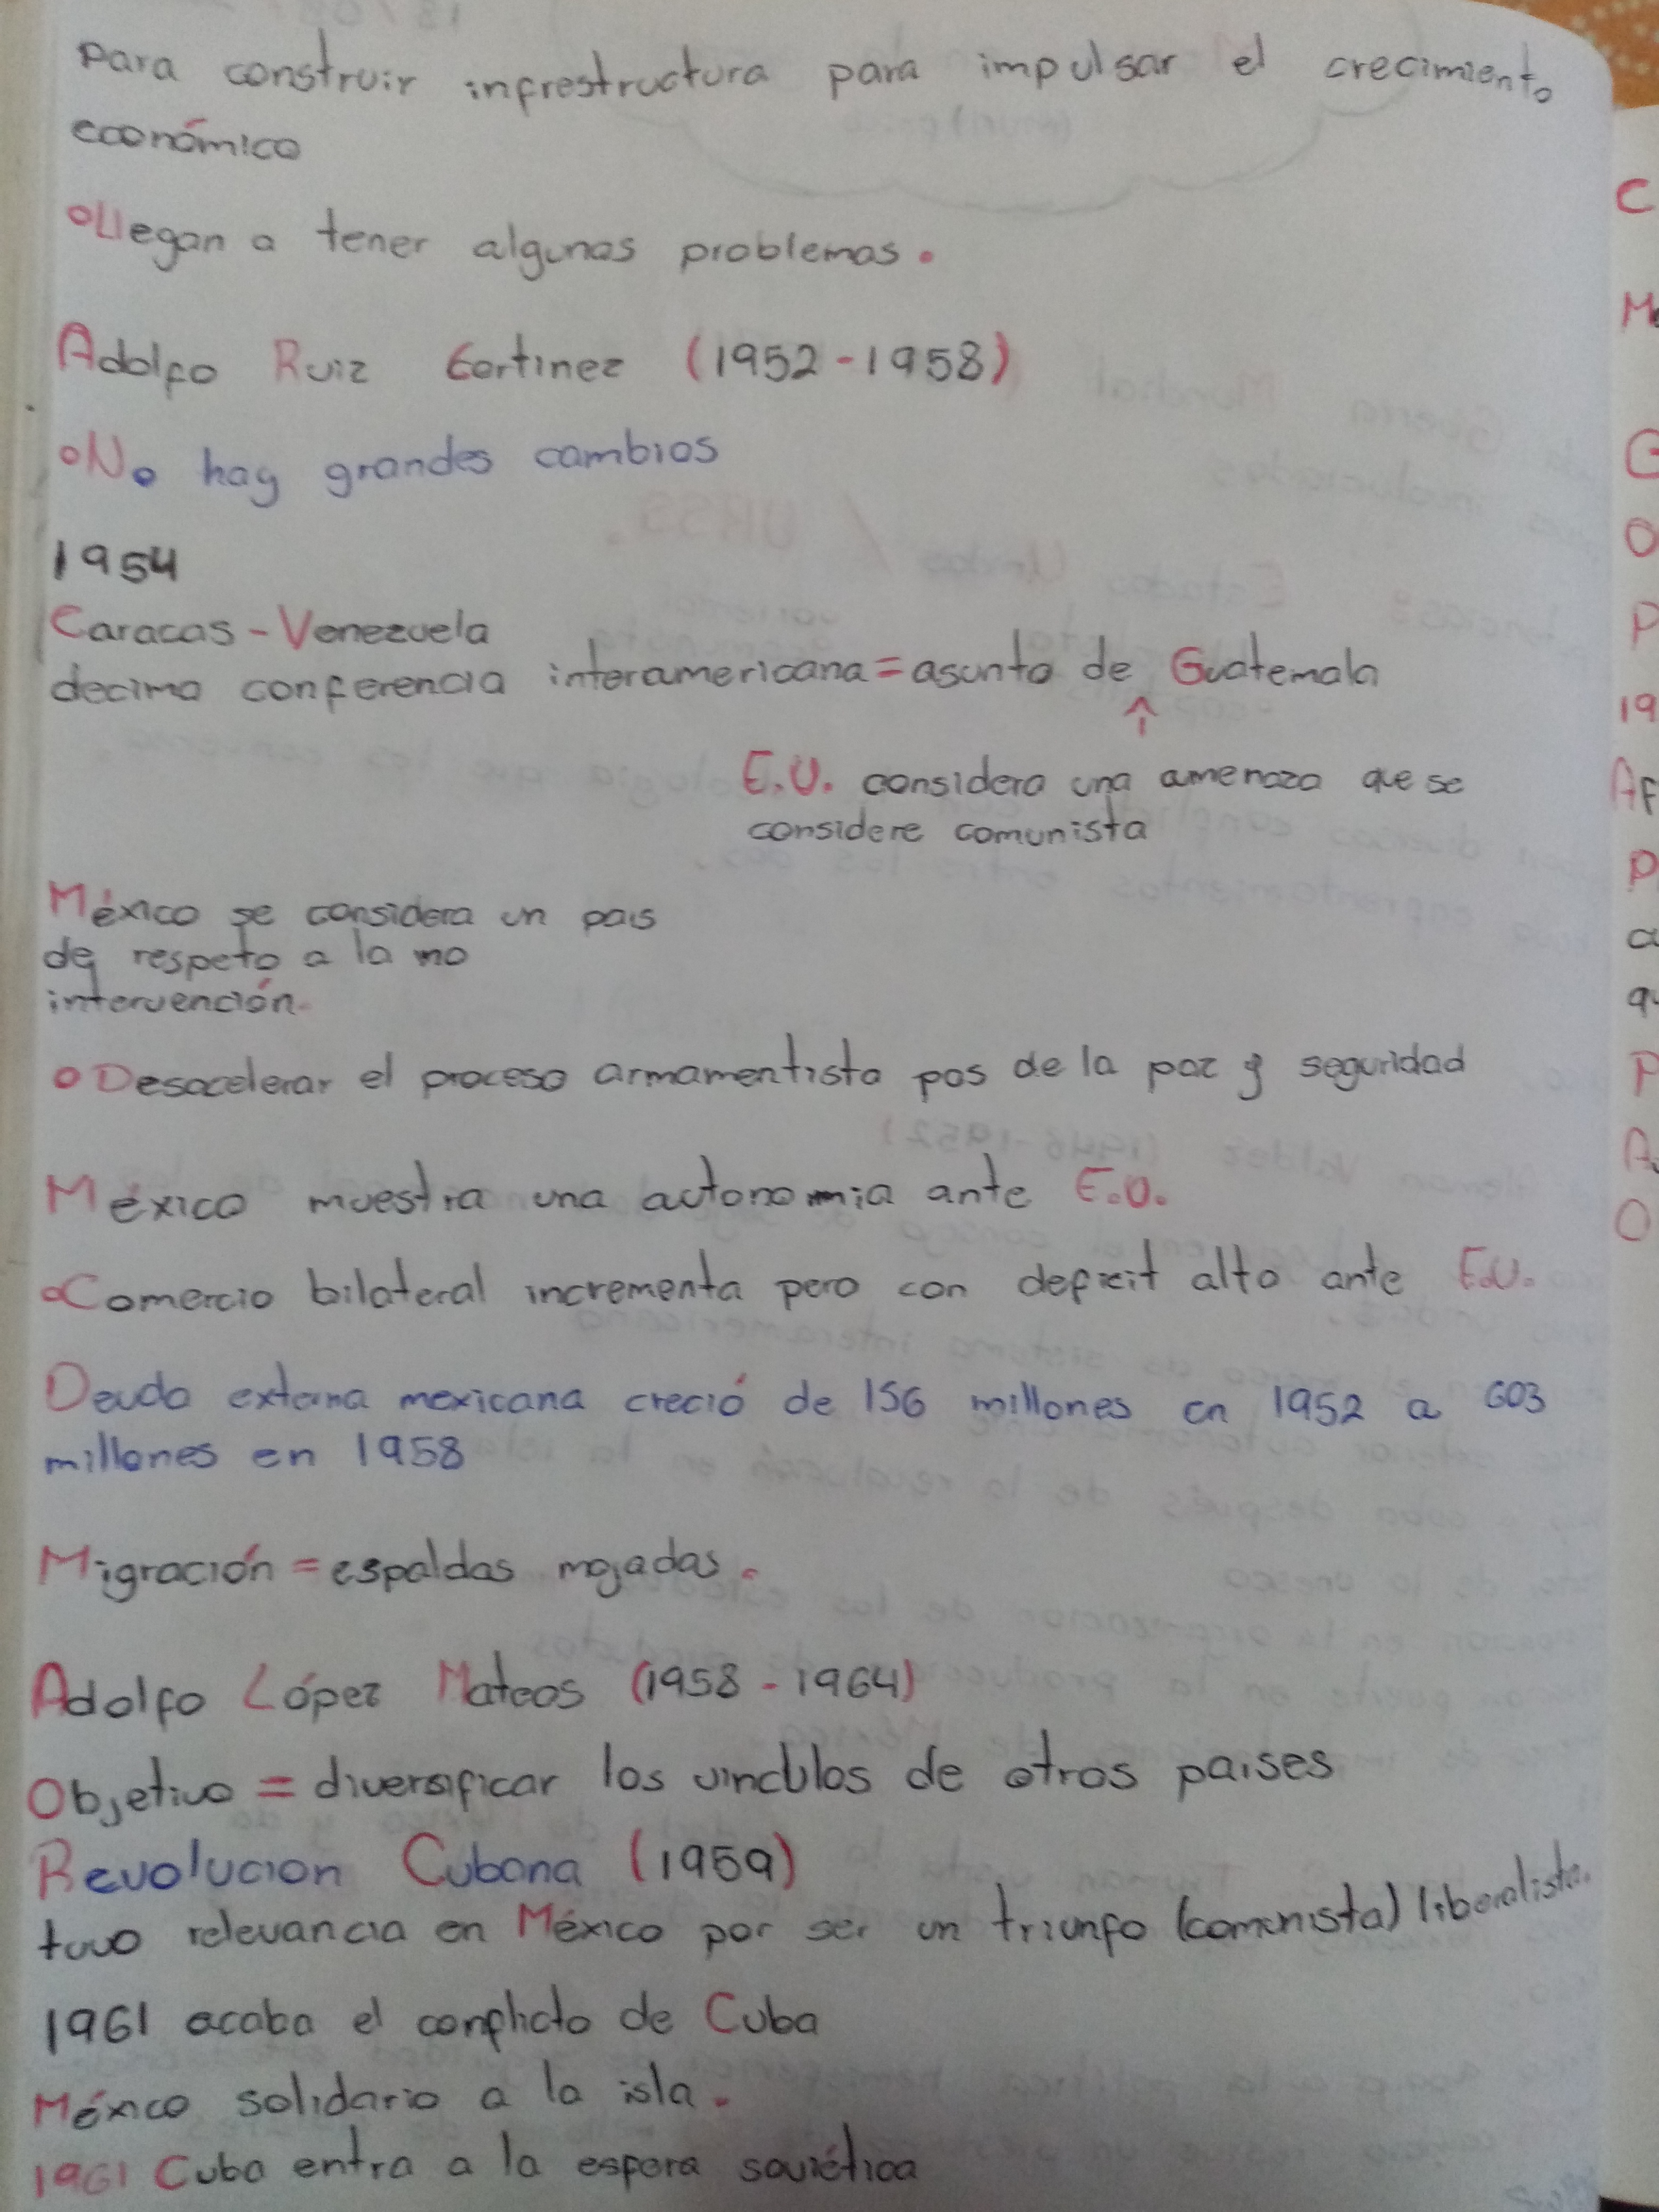 para construir infrestructura para impulsar el crecimiento
económico
°Llegan a tener algunos problemas.
Adolfo Ruiz Cortinez (1952-1958)
°No hay grandes cambios
1954
Caracas-Venezuela
decima conferencia interamericana=asunto de Guatemala
↑
E.U. considera una amenaza que se
considere comunista
México se considera un pais
de respeto a la no
intervención.
°Desacelerar el proceso armamentista pos de la paz y seguridad
México muestra una autonomia ante E.U.
°Comercio bilateral incrementa pero con deficit alto ante E.U.
Deuda externa mexicana creció de 156 millones en 1952 a 603
millones en 1958
Migración=espaldas mojadas.
Adolfo López Mateos (1958-1964)
Objetivo = diversificar los vinculos de otros paises
Revolucion Cubana (1959)
tuvo relevancia en México por ser un triunfo (comunista) liberalista.
1961 acaba el conflicto de Cuba
México solidario a la isla.
1961 Cuba entra a la esfera soviética
C
G
O
P
19
Af
P
a
P
A
O